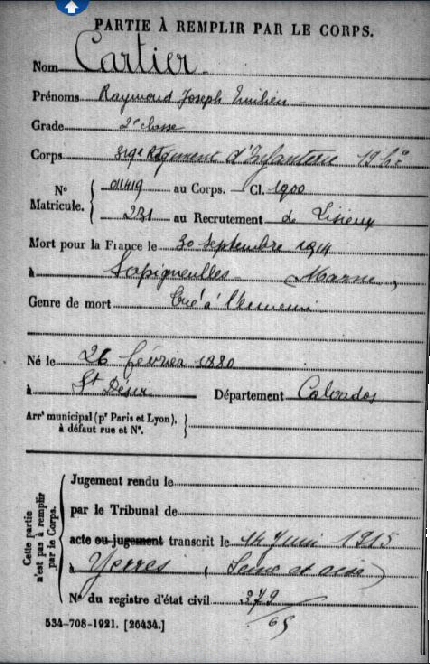 PARTIE À REMPLIR PAR LE CORPS.
Nom Cartier.
Prénoms Raymond Joseph Emilien
Grade 2e classe
Corps 319e Régiment d'Infanterie
N° Matricule. 011419 au Corps. Cl. 1900
231 au Recrutement de Lisieux
Mort pour la France le 30 septembre 1914
à Sapigneulles (Marne)
Genre de mort Tué à l'ennemi
Né le 26 février 1880
à St Désir Département Calvados
Arrt municipal (pr Paris et Lyon),
à défaut rue et N°.
Cette partie n'est pas à remplir par le Corps.
Jugement rendu le
par le Tribunal de
acte ou jugement transcrit le 14 Juin 1915
à Yerres (Seine et Oise)
N° du registre d'état civil 379
/65
534-708-1921. [26434.]